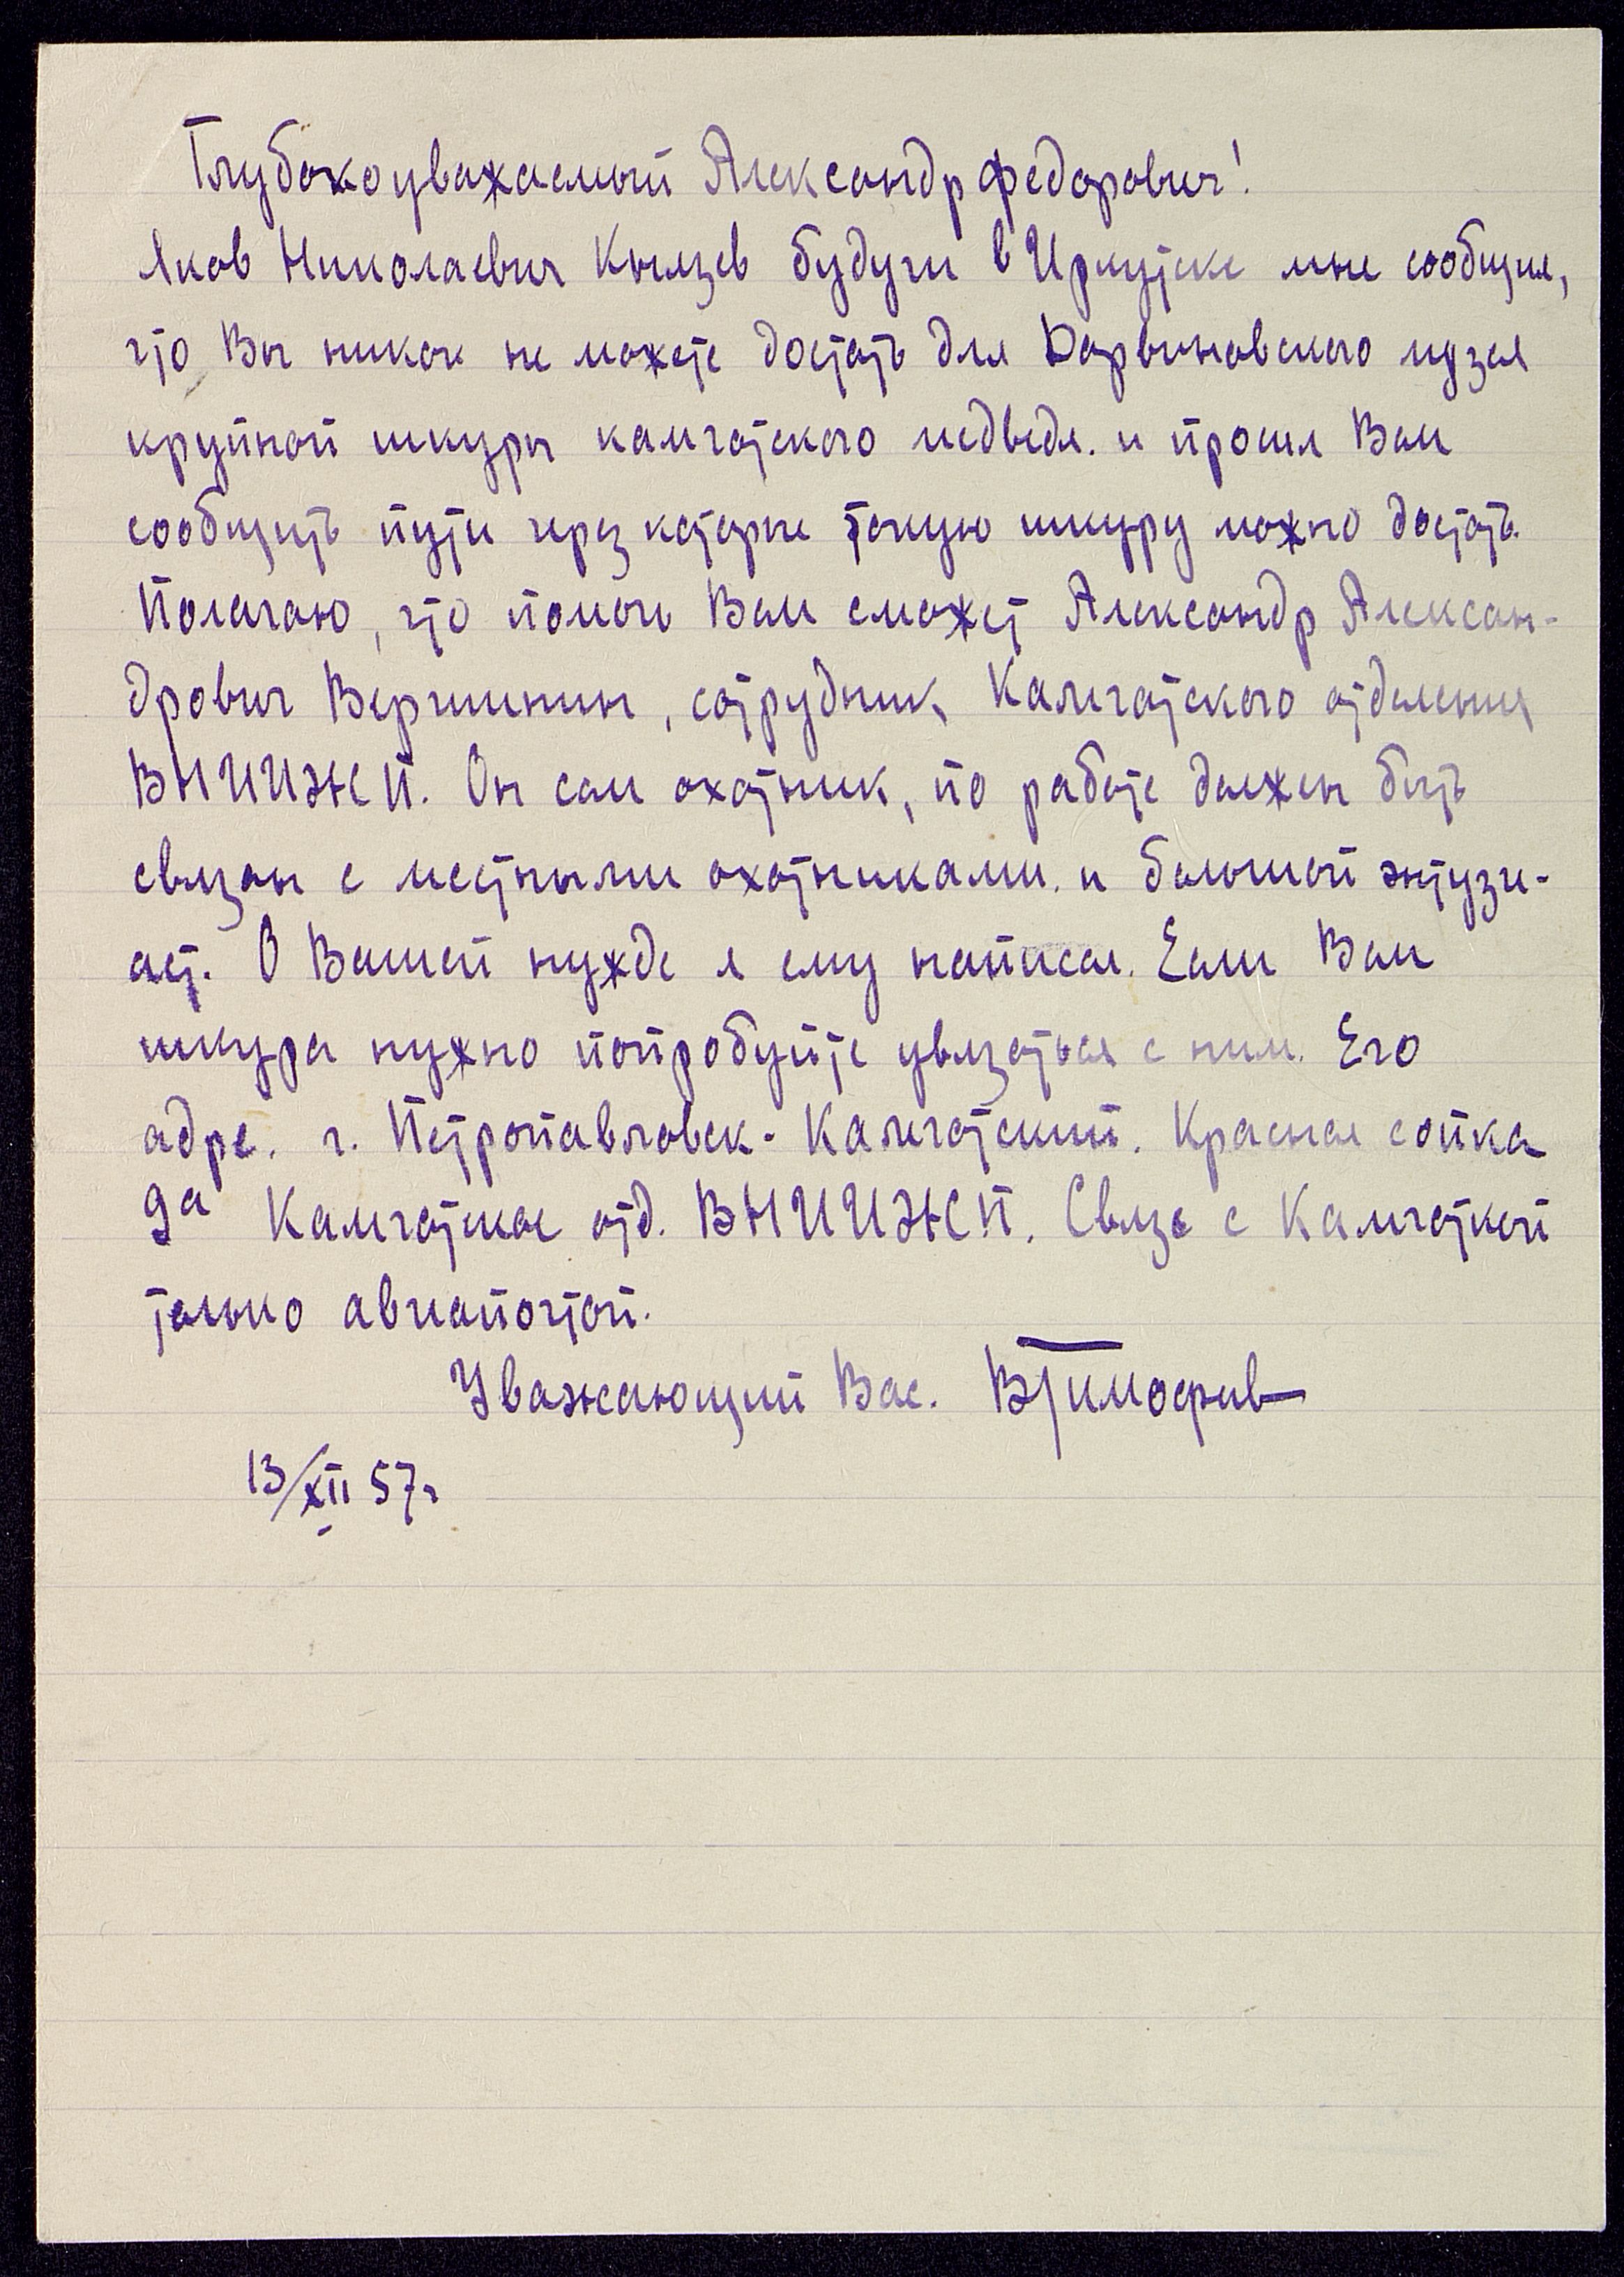 Глубокоуважаемый Александр Федорович!
Яков Николаевич Князев будучи в Иркутске мне сообщил,
что Вы никак не можете достать для Дарвиновского музея
крупной шкуры камчатского медведя. и просил Вам
сообщить пути через которые такую шкуру можно достать.
Полагаю, что помочь Вам сможет Александр Алексан-
дрович Вершинин, сотрудник Камчатского отделения
ВНИИЖП. Он сам охотник, по работе должен быть
связан с местными охотниками. и большой энтузи-
аст. О Вашей нужде я ему написал. Если Вам
шкура нужно попробуйте увязаться с ним. Его
адре. г. Петропавловск-Камчатский. Красная сопка
9а Камчатское отд. ВНИИЖП. Связь с Камчаткой
только авиапочтой.
Уважающий Вас. ВТимофеев
13/XII 57г